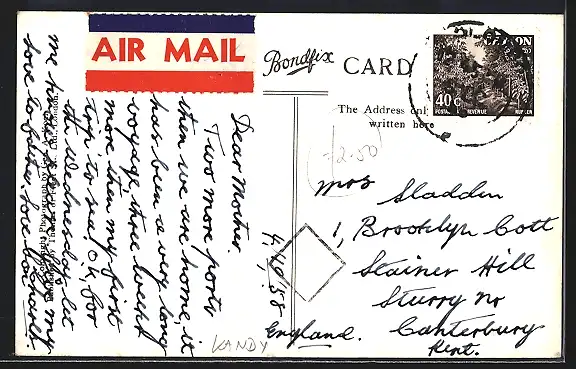 AIR MAIL
Bondfix CARD
CEYLON
40 C
POSTAGE REVENUE
The Address only
written here
12.50
Mrs Sladden
1, Brooklyn Cott
Stainer Hill
Sturry Nr
Canterbury
Kent.
England.
4/10/58
Dear Mother.
Two more ports
then we are home, it
has been a very long
voyage three weeks
more then my first
trip to sea. Oh, for
Wednesday, let
me
my
love to father, love
KANDY